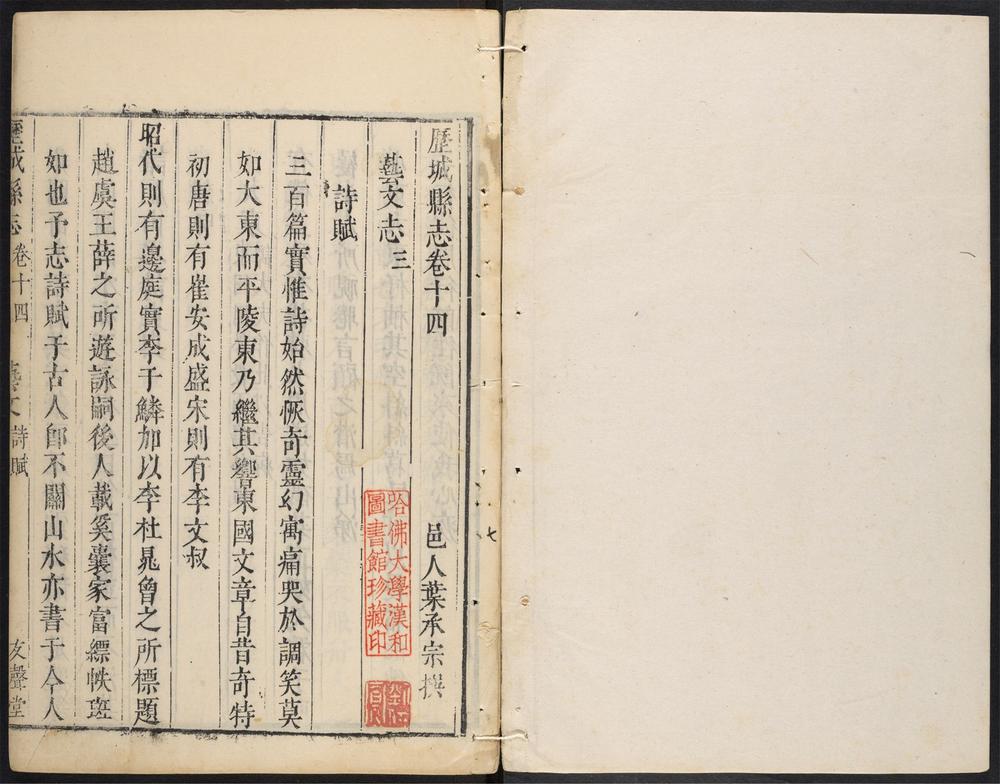 歷城縣志卷十四
邑人葉承宗撰
藝文志三
詩賦
三百篇實惟詩始然恢奇靈幻寓痛哭於調笑莫
如大東而平陵東乃繼其響東國文章自昔奇特
初唐則有崔安成盛宋則有李文叔
昭代則有邊庭實李于鱗加以李杜晁曾之所標題
趙虞王薛之所遊詠嗣後人載奚囊家富縹帙斑斑
如也予志詩賦于古人卽不關山水亦書于今人
歷城縣志 卷十四 藝文 詩賦 友聲堂
哈佛大學漢和
圖書館珍藏印
七